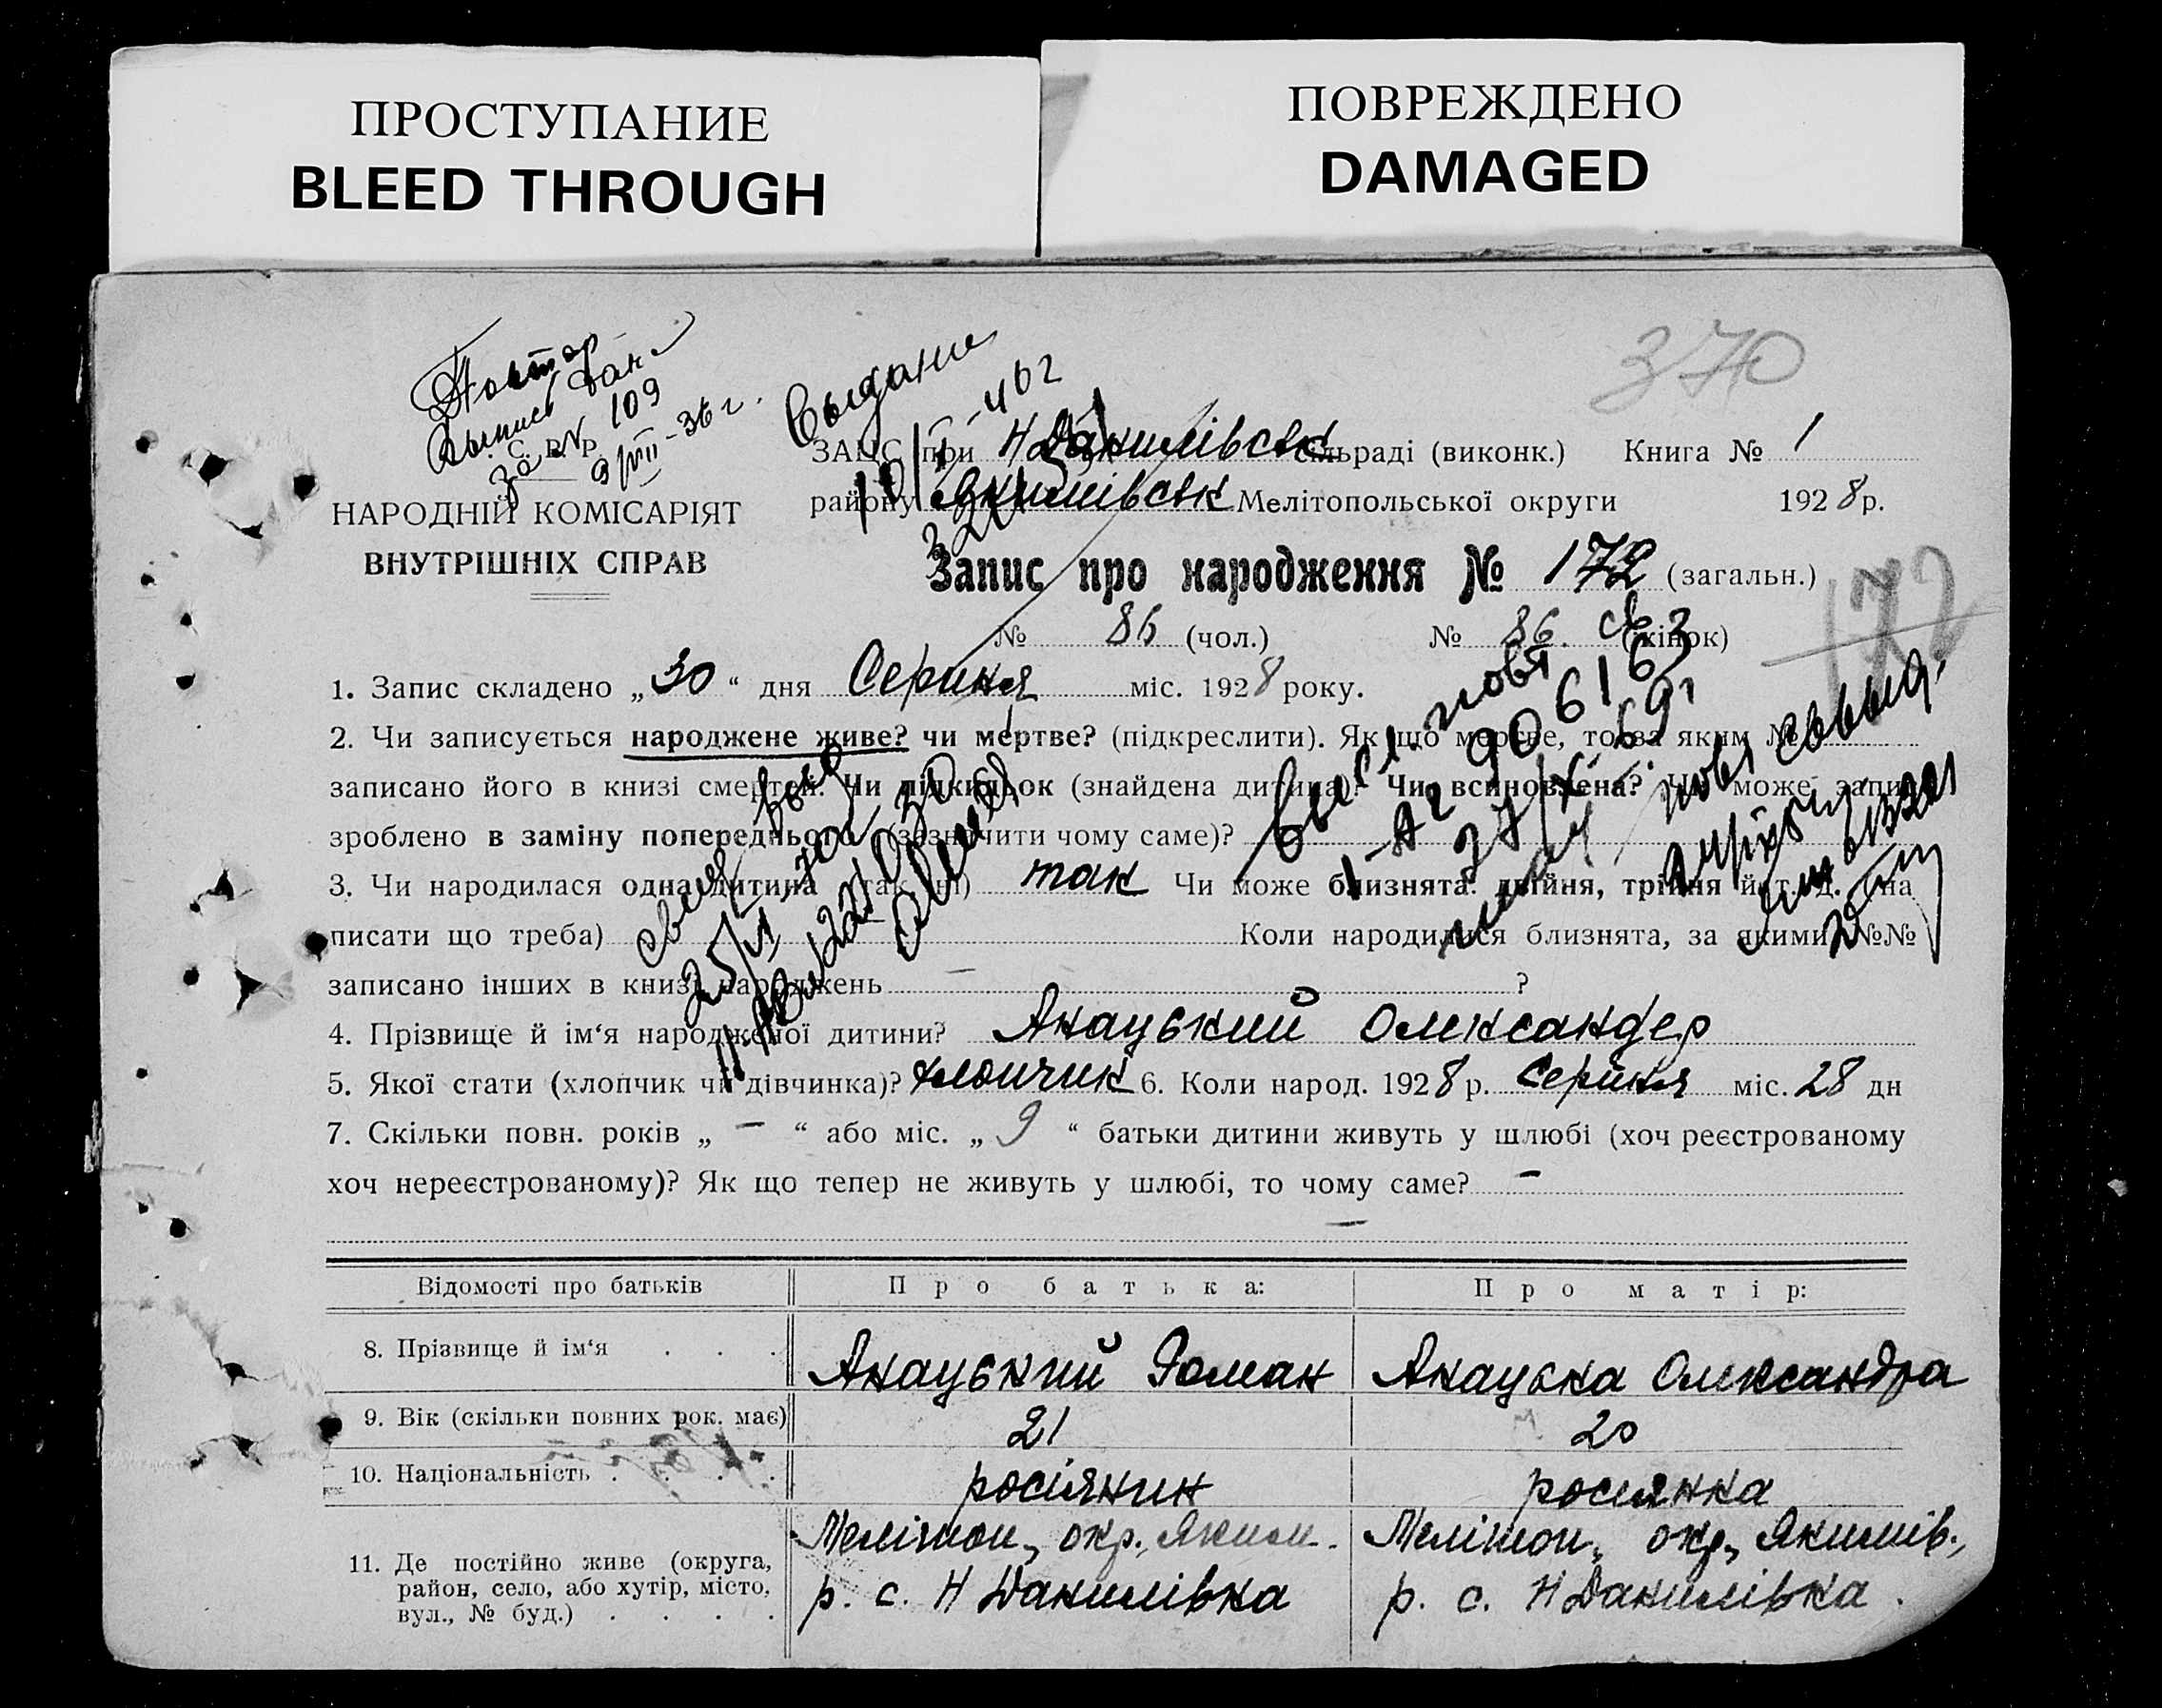 ПРОСТУПАНИЕ
BLEED THROUGH
ПОВРЕЖДЕНО
DAMAGED
370
Повтор
выпись дан
за № 109
9/VIII-36 г.
С. Р. Р.
НАРОДНІЙ КОМІСАРІЯТ
ВНУТРІШНІХ СПРАВ
ЗАЦС при Н Данилівськ сільраді (виконк.) Книга № 1
району Якимівськ Мелітопольської округи 1928 р.
Запис про народження № 172 (загальн.)
172
№ 86 (чол.) № 86. (жінок)
1. Запис складено „30“ дня Серпня міс. 1928 року.
2. Чи записується народжене живе? чи мертве? (підкреслити). Як що мертве, то за яким №
записано його в книзі смертей. Чи підкидьок (знайдена дитина)? Чи всиновлена? Чи може запис
зроблено в заміну попереднього (зазначити чому саме)?
3. Чи народилася одна дитина (так, ні) так Чи може близнята: двійня, трійня й т. д. (на
писати що треба) Коли народилися близнята, за якими №№
записано інших в книзі народжень — ?
4. Прізвище й ім‘я народженої дитини? Анацький Олександер
5. Якої стати (хлопчик чи дівчинка)? хлопчик 6. Коли народ. 1928 р. Серпня міс. 28 дн
7. Скільки повн. років „ — “ або міс. „ 9 “ батьки дитини живуть у шлюбі (хоч реєстрованому
хоч нереєстрованому)? Як що тепер не живуть у шлюбі, то чому саме? —
—
Відомості про батьків Про батька: Про матір:
8. Прізвище й ім‘я . . . Анацький Роман Анацька Олександра
9. Вік (скільки повних рок. має) 21 20
10. Національність . . . . росіянин росіянка
11. Де постійно живе (округа, Мелітоп., окр., Яким. Мелітоп., окр., Якимів.,
район, село, або хутір, місто, р. с. Н Данилівка р. с. Н Данилівка.
вул., № буд.) . . . .